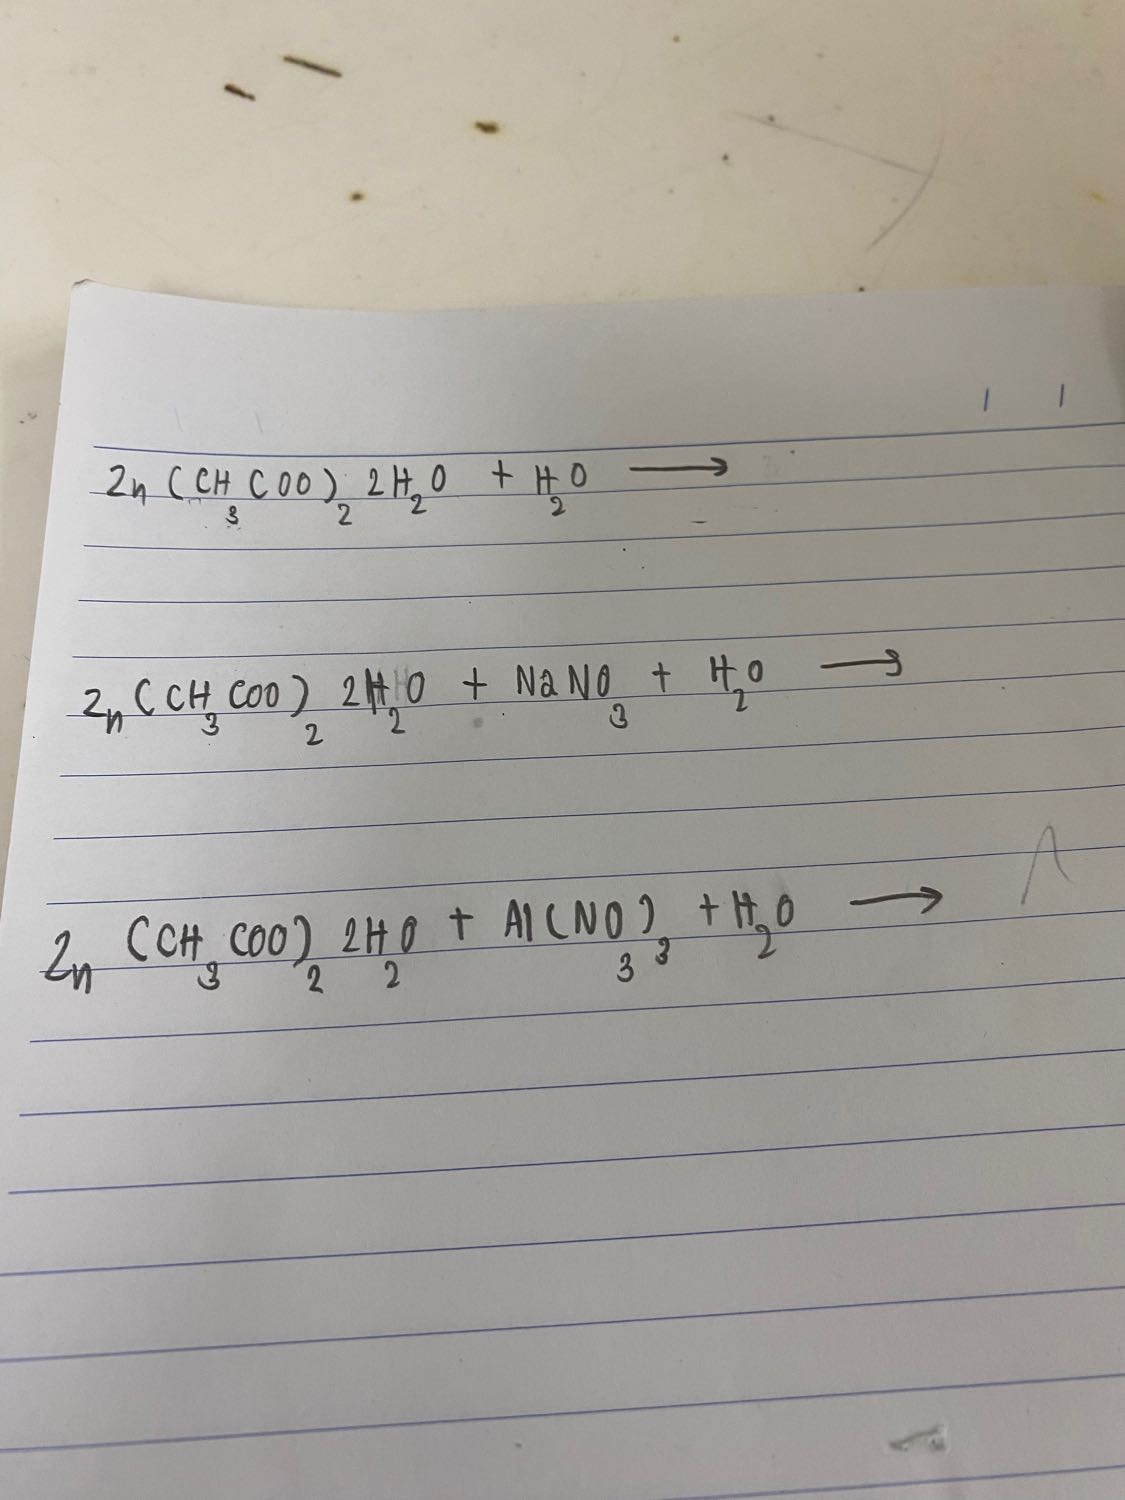 Zn(CH₃COO)₂ 2H₂O + H₂O ⟶
Zn(CH₃COO)₂ 2H₂O + NaNO₃ + H₂O ⟶
Zn(CH₃COO)₂ 2H₂O + Al(NO₃)₃ + H₂O ⟶